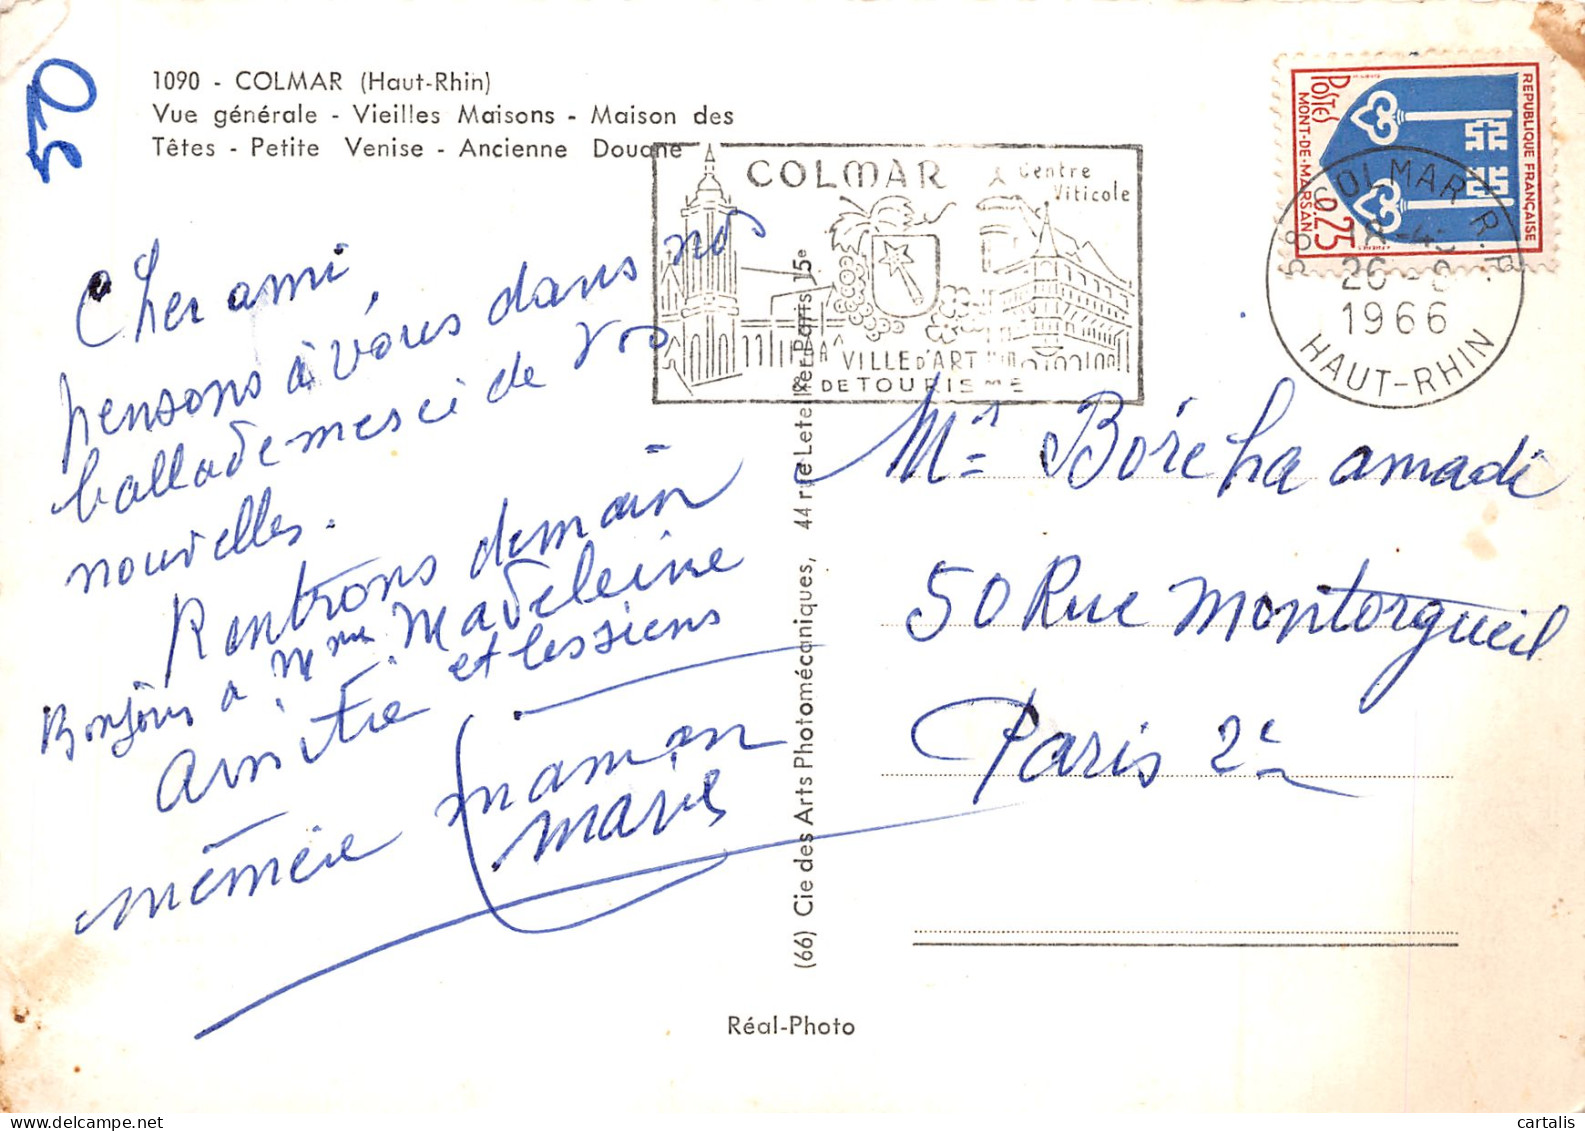 50
1090 - COLMAR (Haut-Rhin)
Vue générale - Vieilles Maisons - Maison des
Têtes - Petite Venise - Ancienne Douane
COLMAR
Centre
Viticole
VILLE D'ART
DE TOURISME
REPUBLIQUE FRANÇAISE
POSTES
MONT-DE-MARSAN
0.25
COLMAR R.P.
26
1966
HAUT-RHIN
Cher ami
pensons à vous dans nos
ballade merci de vos
nouvelles.
Rentrons demain
Bonjour à Mme Madeleine
et les siens
Amitié
mémère maman
Marie
Mr Borcha amadi
50 Rue Montorgueil
Paris 2e
(66) Cie des Arts Photomécaniques, 44 rue Letellier Paris 15e
Réal-Photo
cartalis